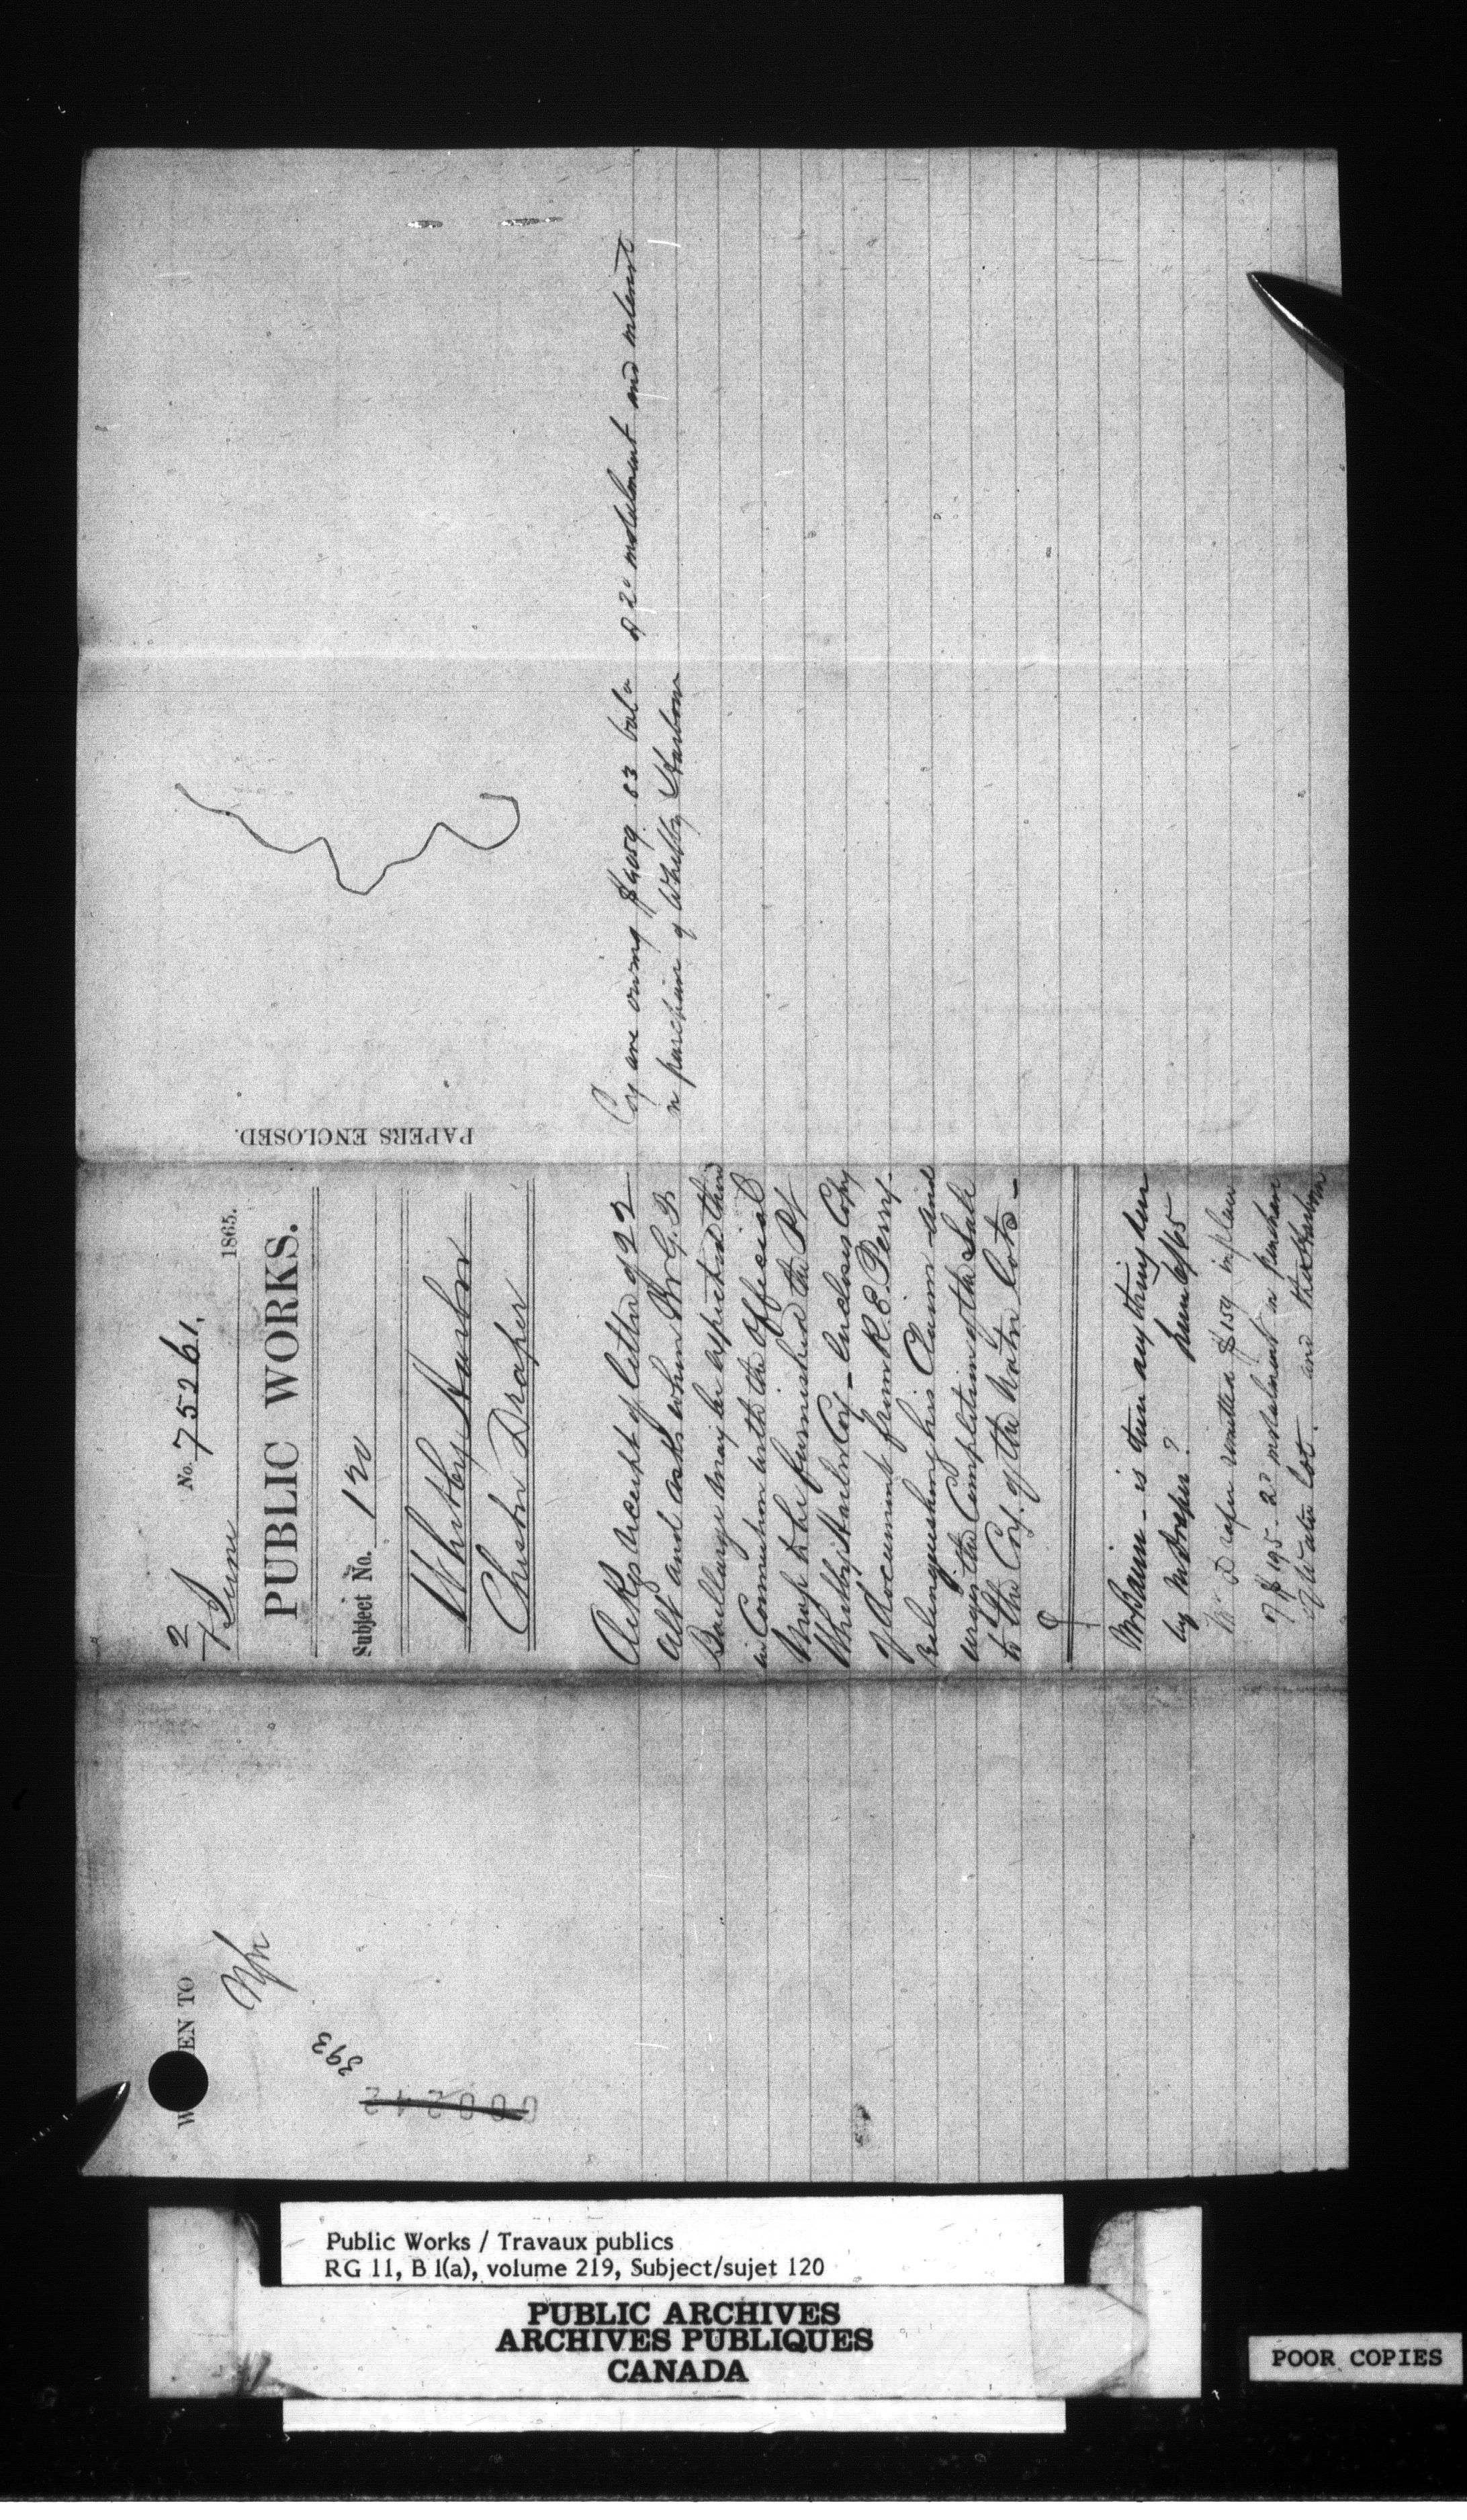 No. 75261.
2
7 June 1865.
PUBLIC WORKS.
Subject No. 120
Whitby Harbor
Chester Draper
Ackgs receipt of letter of 22
Ult and asks when Mr G. F.
Baillairge may be expected there
in Connection with the Official
Map to be furnished the Pt
Whitby Harbor Coy – Encloses Copy
of document from R. E. Perry
relinquishing his Claim and
urges the Completion of the Sale
to the Coy. of the Water Lots –
Mr Baine – is there any thing due
by Mr Draper? June 6/65
Mr D refer remitted $159 in
of $195 – 2d instalment on purchase
of Water Lot. and Harbour
PAPERS ENCLOSED.
Coy are owing $4059.83 bale of 2d instalment and interest
on purchase of Whitby Harbour
W EN TO
393
000242
Public Works / Travaux publics
RG 11, B 1(a), volume 219, Subject/sujet 120
PUBLIC ARCHIVES
ARCHIVES PUBLIQUES
CANADA
POOR COPIES